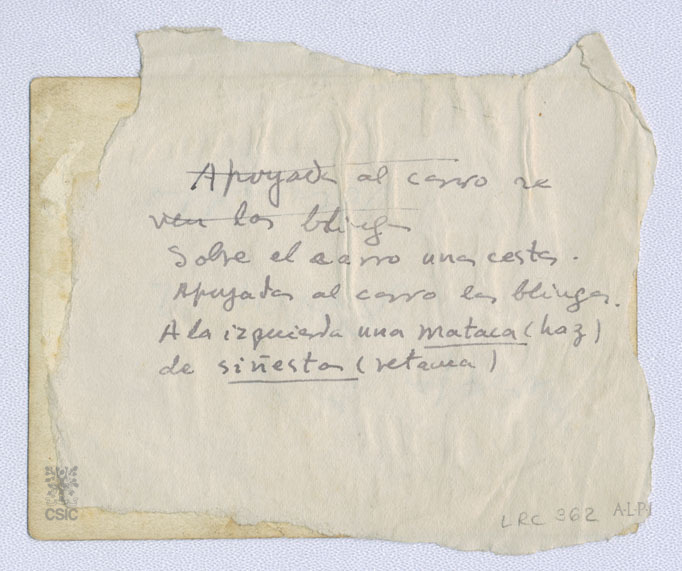 Apoyada al carro se
ven las blingas
Sobre el carro una cesta.
Apoyadas al carro las blingas.
A la izquierda una mataca (haz)
de siñesta (retama)
CSIC
LRC 362 A-L-P-I